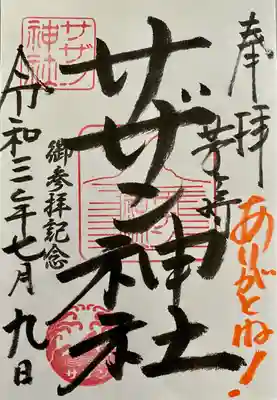 奉拝
茅ヶ崎
ありがとね!
サザン神社
御参拝記念
令和三年七月九日
サザン
神社